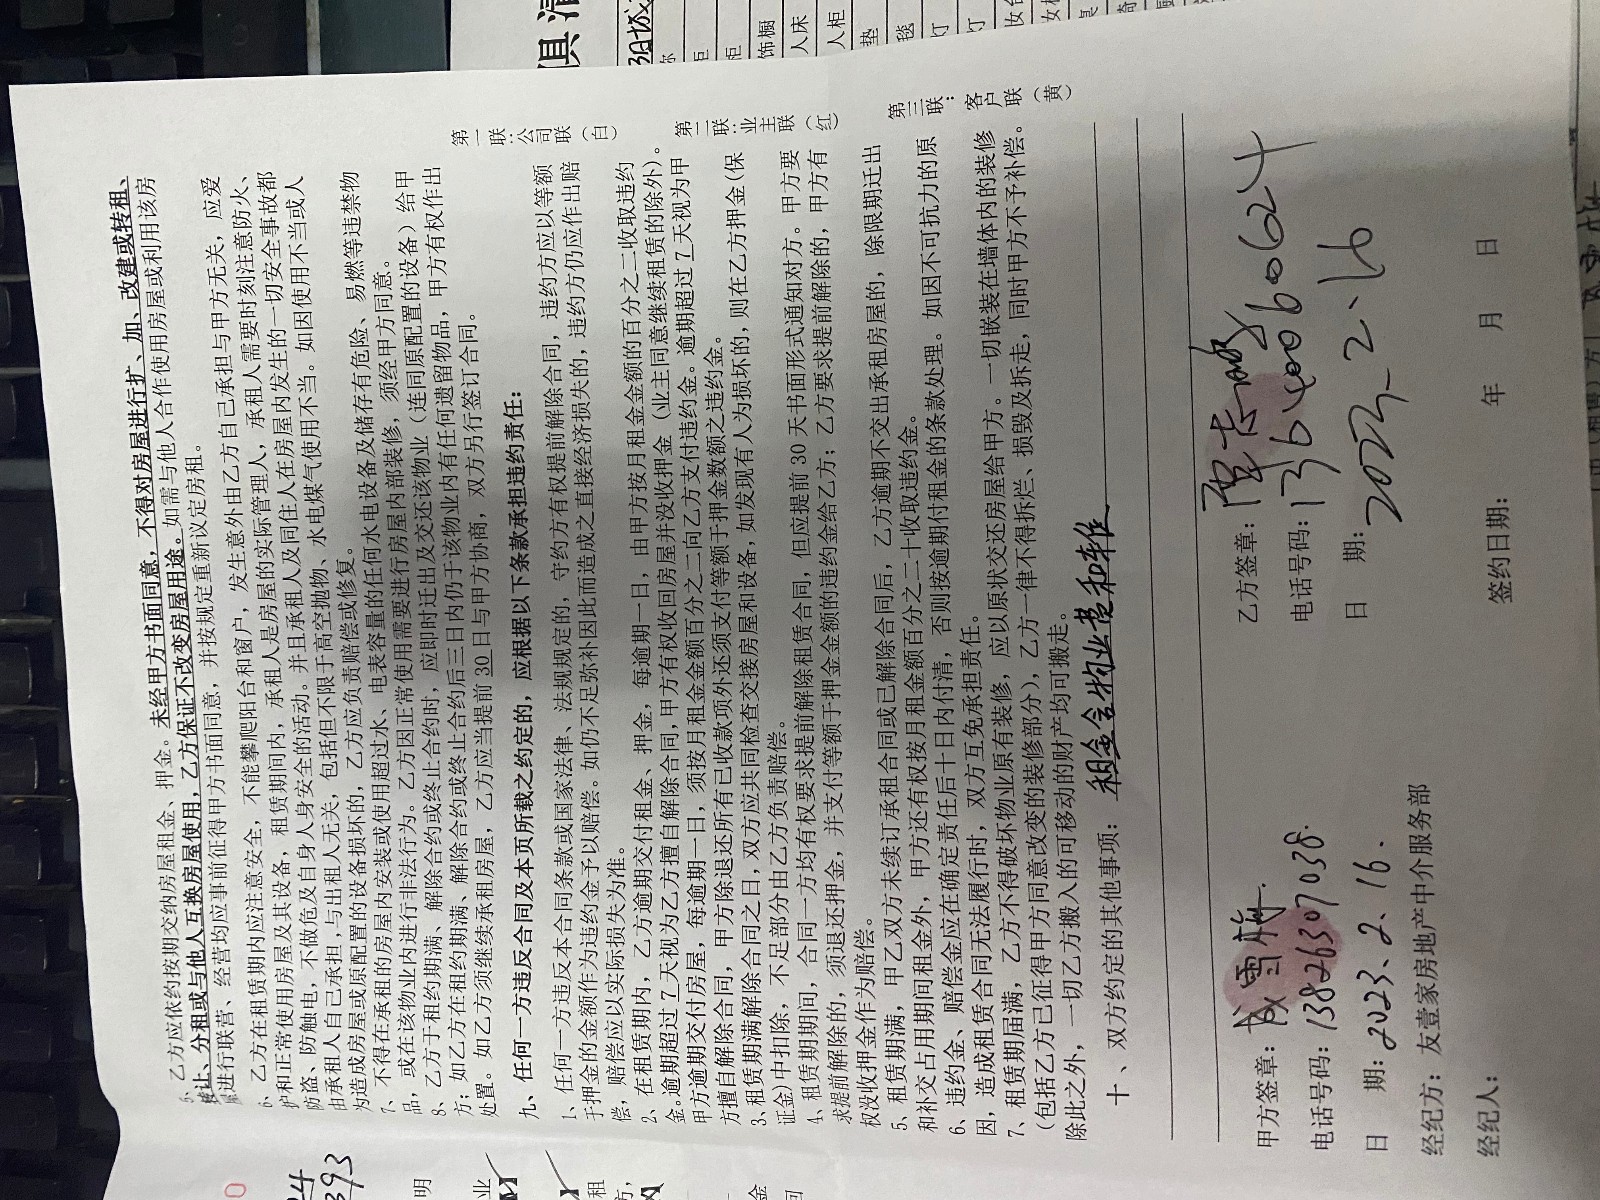 5、乙方应依约按期交纳房屋租金、押金。未经甲方书面同意，不得对房屋进行扩、加、改建或转租、
转让、分租或与他人互换房屋使用，乙方保证不改变房屋用途。如需与他人合作使用房屋或利用该房
屋进行联营、经营均应事前征得甲方书面同意，并按规定重新议定房租。
6、乙方在租赁期内应注意安全，不能攀爬阳台和窗户，发生意外由乙方自己承担与甲方无关，应爱
护和正常使用房屋及其设备，租赁期间内，承租人是房屋的实际管理人，承租人需要时刻注意防火、
防盗、防触电，不做危及自身人身安全的活动。并且承租人及同住人在房屋内发生的一切安全事故都
由承租人自己承担，与出租人无关，包括但不限于高空抛物、水电煤气使用不当。如因使用不当或人
为造成房屋或原配置的设备损坏的，乙方应负责赔偿或修复。
7、不得在承租的房屋内安装或使用超过水、电表容量的任何水电设备及储存有危险、易燃等违禁物
品，或在该物业内进行非法行为。乙方因正常使用需要进行房屋内部装修，须经甲方同意。
8、乙方于租约期满、解除合约或终止合约时，应即时迁出及交还该物业（连同原配置的设备）给甲
方；如乙方在租约期满、解除合约或终止合约后三日内仍于该物业内有任何遗留物品，甲方有权作出
处置。如乙方须继续承租房屋，乙方应当提前30日与甲方协商，双方另行签订合同。
九、任何一方违反合同及本页所载之约定的，应根据以下条款承担违约责任：
1、任何一方违反本合同条款或国家法律、法规规定的，守约方有权提前解除合同，违约方应以等额
于押金的金额作为违约金予以赔偿。如仍不足弥补因此而造成之直接经济损失的，违约方仍应作出赔
偿，赔偿应以实际损失为准。
2、在租赁期内，乙方逾期交付租金、押金，每逾期一日，由甲方按月租金金额的百分之二收取违约
金。逾期超过7天视为乙方擅自解除合同，甲方有权收回房屋并没收押金（业主同意继续租赁的除外）。
甲方逾期交付房屋，每逾期一日，须按月租金金额百分之二向乙方支付违约金。逾期超过7天视为甲
方擅自解除合同，甲方除退还所有已收款项外还须支付等额于押金数额之违约金。
3、租赁期满解除合同之日，双方应共同检查交接房屋和设备，如发现有人为损坏的，则在乙方押金（保
证金）中扣除，不足部分由乙方负责赔偿。
4、租赁期期间，合同一方均有权要求提前解除租赁合同，但应提前30天书面形式通知对方。甲方要
求提前解除的，须退还押金，并支付等额于押金金额的违约金给乙方；乙方要求提前解除的，甲方有
权没收押金作为赔偿。
5、租赁期满，甲乙双方未续订承租合同或已解除合同后，乙方逾期不交出承租房屋的，除限期迁出
和补交占用期间租金外，甲方还有权按月租金额百分之二十收取违约金。
6、违约金、赔偿金应在确定责任后十日内付清，否则按逾期付租金的条款处理。如因不可抗力的原
因，造成租赁合同无法履行时，双方互免承担责任。
7、租赁期届满，乙方不得破坏物业原有装修，应以原状交还房屋给甲方。一切嵌装在墙体内的装修
（包括乙方已征得甲方同意改变的装修部分），乙方一律不得拆烂、损毁及拆走，同时甲方不予补偿。
除此之外，一切乙方搬入的可移动的财产均可搬走。
十、双方约定的其他事项：租金含物业费和维
甲方签章：
电话号码：13826307038
日期：2023.2.16.
乙方签章：
电话号码：13640060624
日期：2023.2.16
经纪方：友壹家房地产中介服务部
经纪人：
签约日期： 年 月 日
第一联：公司联（白）
第二联：业主联（红）
第三联：客户联（黄）
俱清
饰橱
人床
人柜
垫
毯
灯
393
明
业
租
方，
金